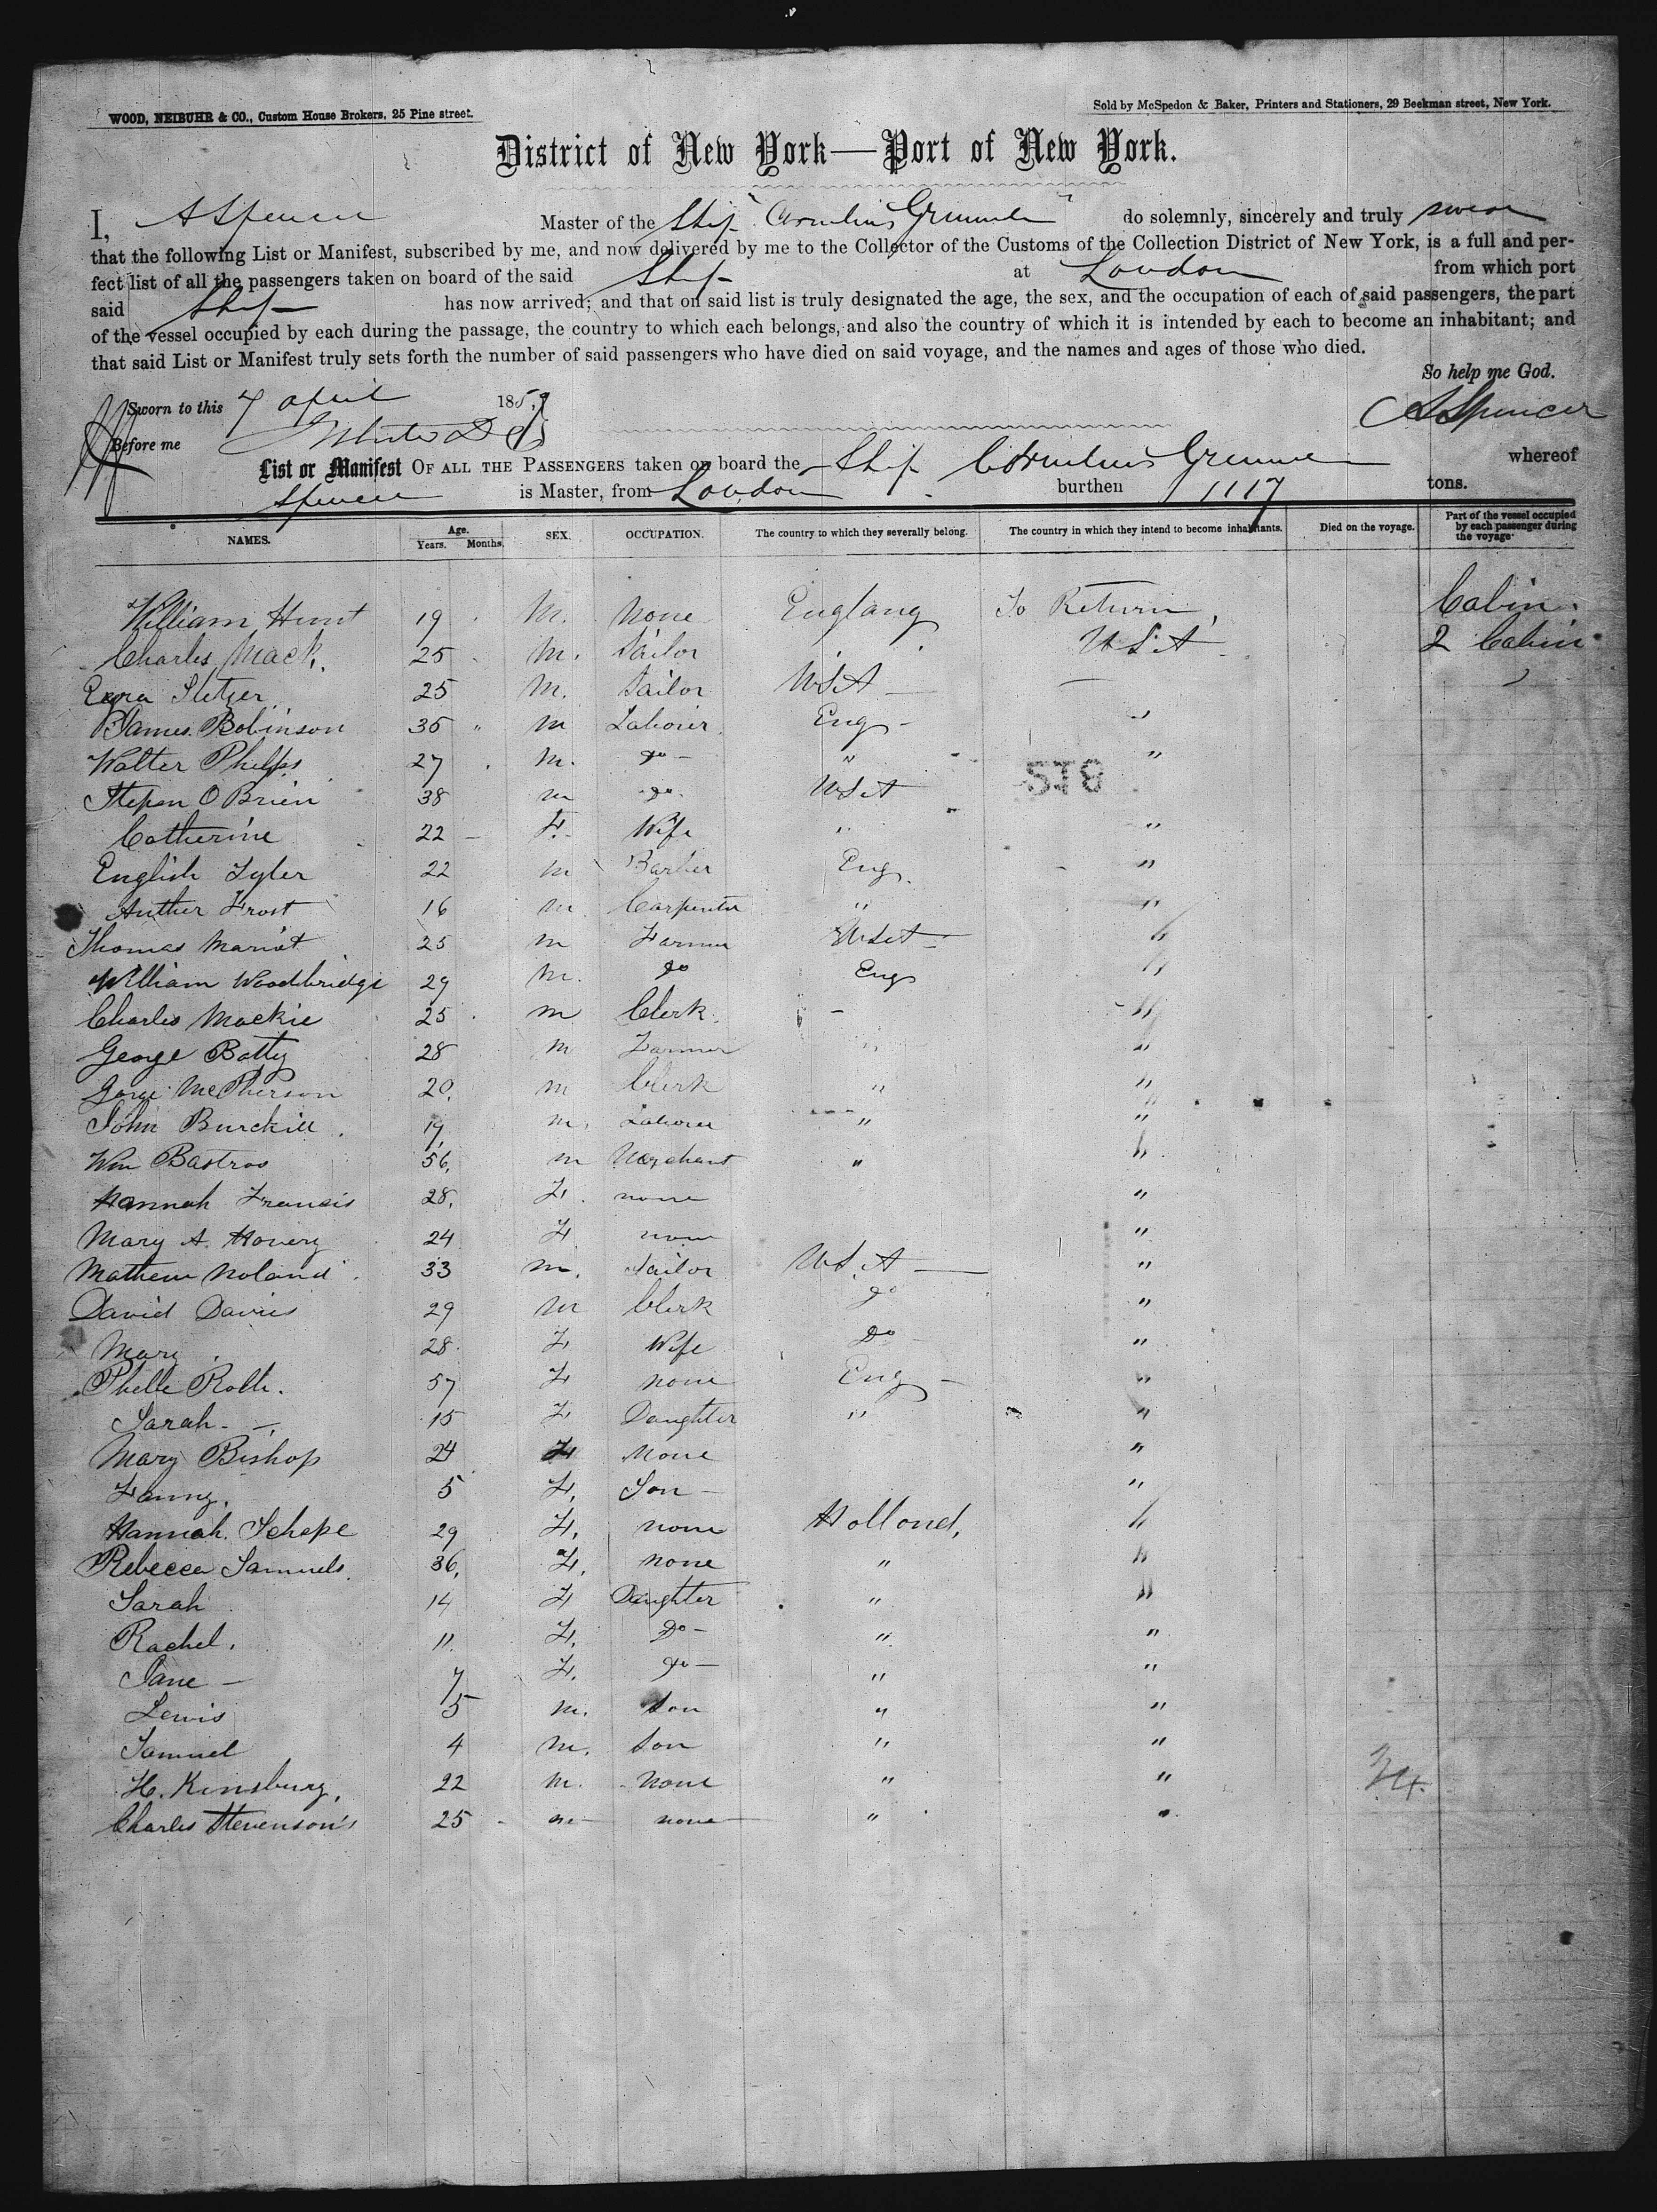 WOOD, NEIBUHR & CO., Custom House Brokers, 25 Pine street.
Sold by McSpedon & Baker, Printers and Stationers, 29 Beekman street, New York.
District of New York—Port of New York.
I, A Spencer Master of the Ship "Cornelius Grinnell" do solemnly, sincerely and truly swear
that the following List or Manifest, subscribed by me, and now delivered by me to the Collector of the Customs of the Collection District of New York, is a full and per-
fect list of all the passengers taken on board of the said Ship at London from which port
said Ship has now arrived; and that on said list is truly designated the age, the sex, and the occupation of each of said passengers, the part
of the vessel occupied by each during the passage, the country to which each belongs, and also the country of which it is intended by each to become an inhabitant; and
that said List or Manifest truly sets forth the number of said passengers who have died on said voyage, and the names and ages of those who died.
So help me God.
Sworn to this 7 april 1859
A Spencer
Before me
List or Manifest OF ALL THE PASSENGERS taken on board the Ship Cornelius Grinnell whereof
Spencer is Master, from London burthen 1117 tons.
NAMES. Age. Years. Months. SEX. OCCUPATION. The country to which they severally belong. The country in which they intend to become inhabitants. Died on the voyage. Part of the vessel occupied by each passenger during the voyage
William Hunt 19 M. None England To Return Cabin
Charles Mack 25 M. Tailor " U S A 2 Cabin
Ezra 25 M. Tailor U S A —
James Robinson 35 " M Labourer Eng - "
Walter Phelps 27 M. do - " "
Stepen O Brien 38 m do. U S A
578
Catherine 22 F. Wife " "
English Tyler 22 m Barber Eng. "
Auther Frost 16 m Carpenter " "
Thomas Mariot 25 m Farmer U S A "
William Woodbridge 29 M. do Eng "
Charles Mackie 25 m Clerk - "
George Batty 28 M Farmer " "
Gorge McPherson 20. m Clerk " "
John Burckill 19 m. Laborer " "
Wm Bastros 56. m Merchant " "
Hannah Francis 28. F. none "
Mary A. Hovery 24 F none "
Mathew Noland 33 m. Tailor U S A — "
David Davies 29 m Clerk do "
Mary 28 F Wife Do "
Phelle Rolle. 57 F none Eng - "
Sarah - 15 F Daughter " "
Mary Bishop 24 F None "
Fanny. 5 F. Son - "
Hannah. Schepe 29 F. none Holland, "
Rebecca Samuels 36. F. none " "
Sarah 14 F Daughter " "
Rachel. 11. F. Do - " "
Jane - 7 F. do - " "
Lewis 5 m. Son " "
Samuel 4 m. Son " "
H. Kinsburg, 22 m. None " "
34.
Charles Stevenson's 25 m none " "